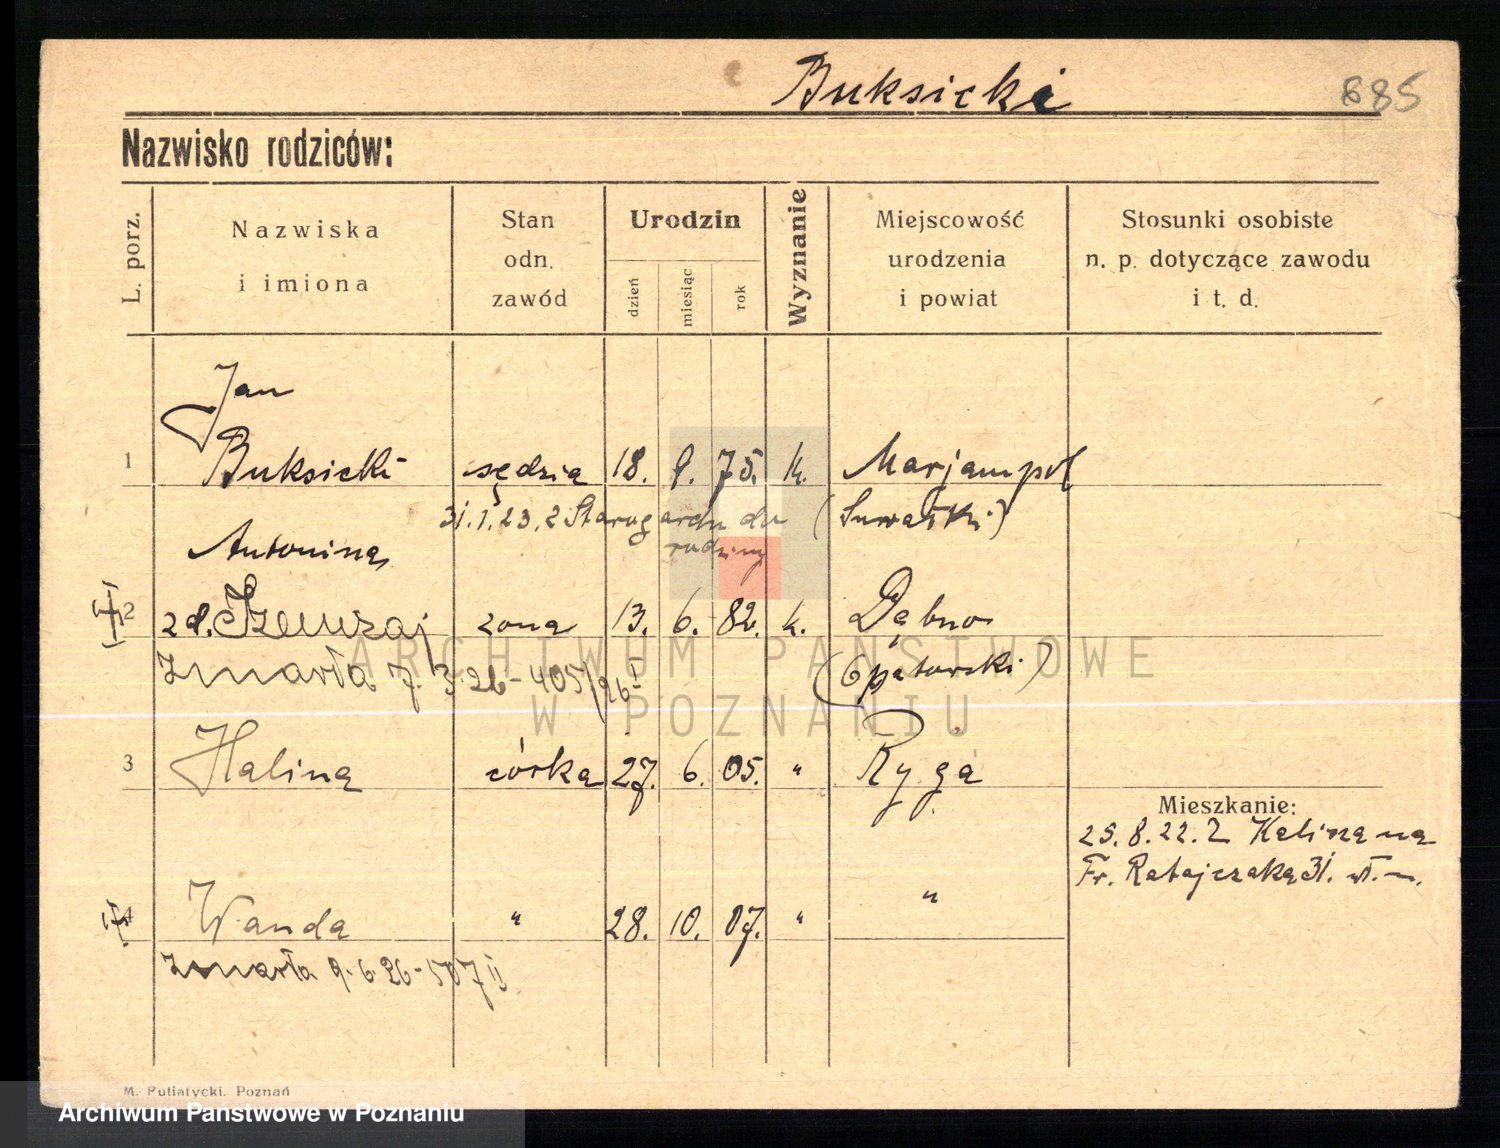 Buksicki 685
Nazwisko rodziców:
L. porz.
Nazwiska
i imiona
Stan
odn.
zawód
Urodzin
dzień
miesiąc
rok
Wyznanie
Miejscowość
urodzenia
i powiat
Stosunki osobiste
n. p. dotyczące zawodu
i t. d.
Jan
1 Buksicki sędzia 18. 9. 75. k. Marjampol
31.1.23. z Starogardu do (Suwałki)
rodziny
Antonina
2 z d. Szemraj żona 13. 6. 82. k. Dębno
zmarła 7. 3. 26 - 405/26 I (Opatowski)
3 Halina córka 27. 6. 05. " Ryga
Mieszkanie:
25. 8. 22. Z Halina na
Fr. Ratajczaka 31.
4 Wanda " 28. 10. 07. " "
zmarła 9. 6. 26 - 507 II
ARCHIWUM PAŃSTWOWE
W POZNANIU
M. Putiatycki. Poznań
Archiwum Państwowe w Poznaniu